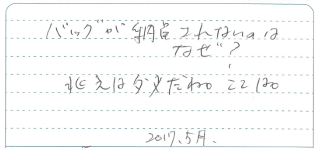 バッグが納品されないのは
なぜ?
はダメだね。ここは。
2017.5月.